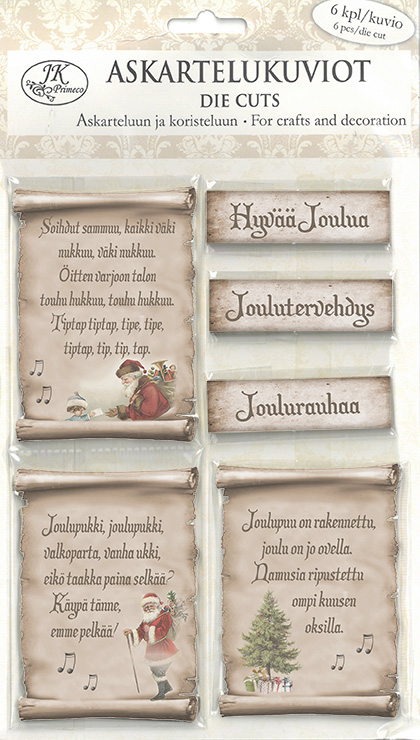 JK
Primeco
6 kpl/kuvio
6 pcs/die cut
ASKARTELUKUVIOT
DIE CUTS
Askarteluun ja koristeluun • For crafts and decoration
Soihdut sammuu, kaikki väki
nukkuu, väki nukkuu.
Öitten varjoon talon
touhu hukkuu, touhu hukkuu.
Tiptap tiptap, tipe, tipe,
tiptap, tip, tip, tap.
Hyvää Joulua
Joulutervehdys
Joulurauhaa
Joulupukki, joulupukki,
valkoparta, vanha ukki,
eikö taakka paina selkää?
Käypä tänne,
emme pelkää!
Joulupuu on rakennettu,
joulu on jo ovella.
Namusia ripustettu
ompi kuusen
oksilla.